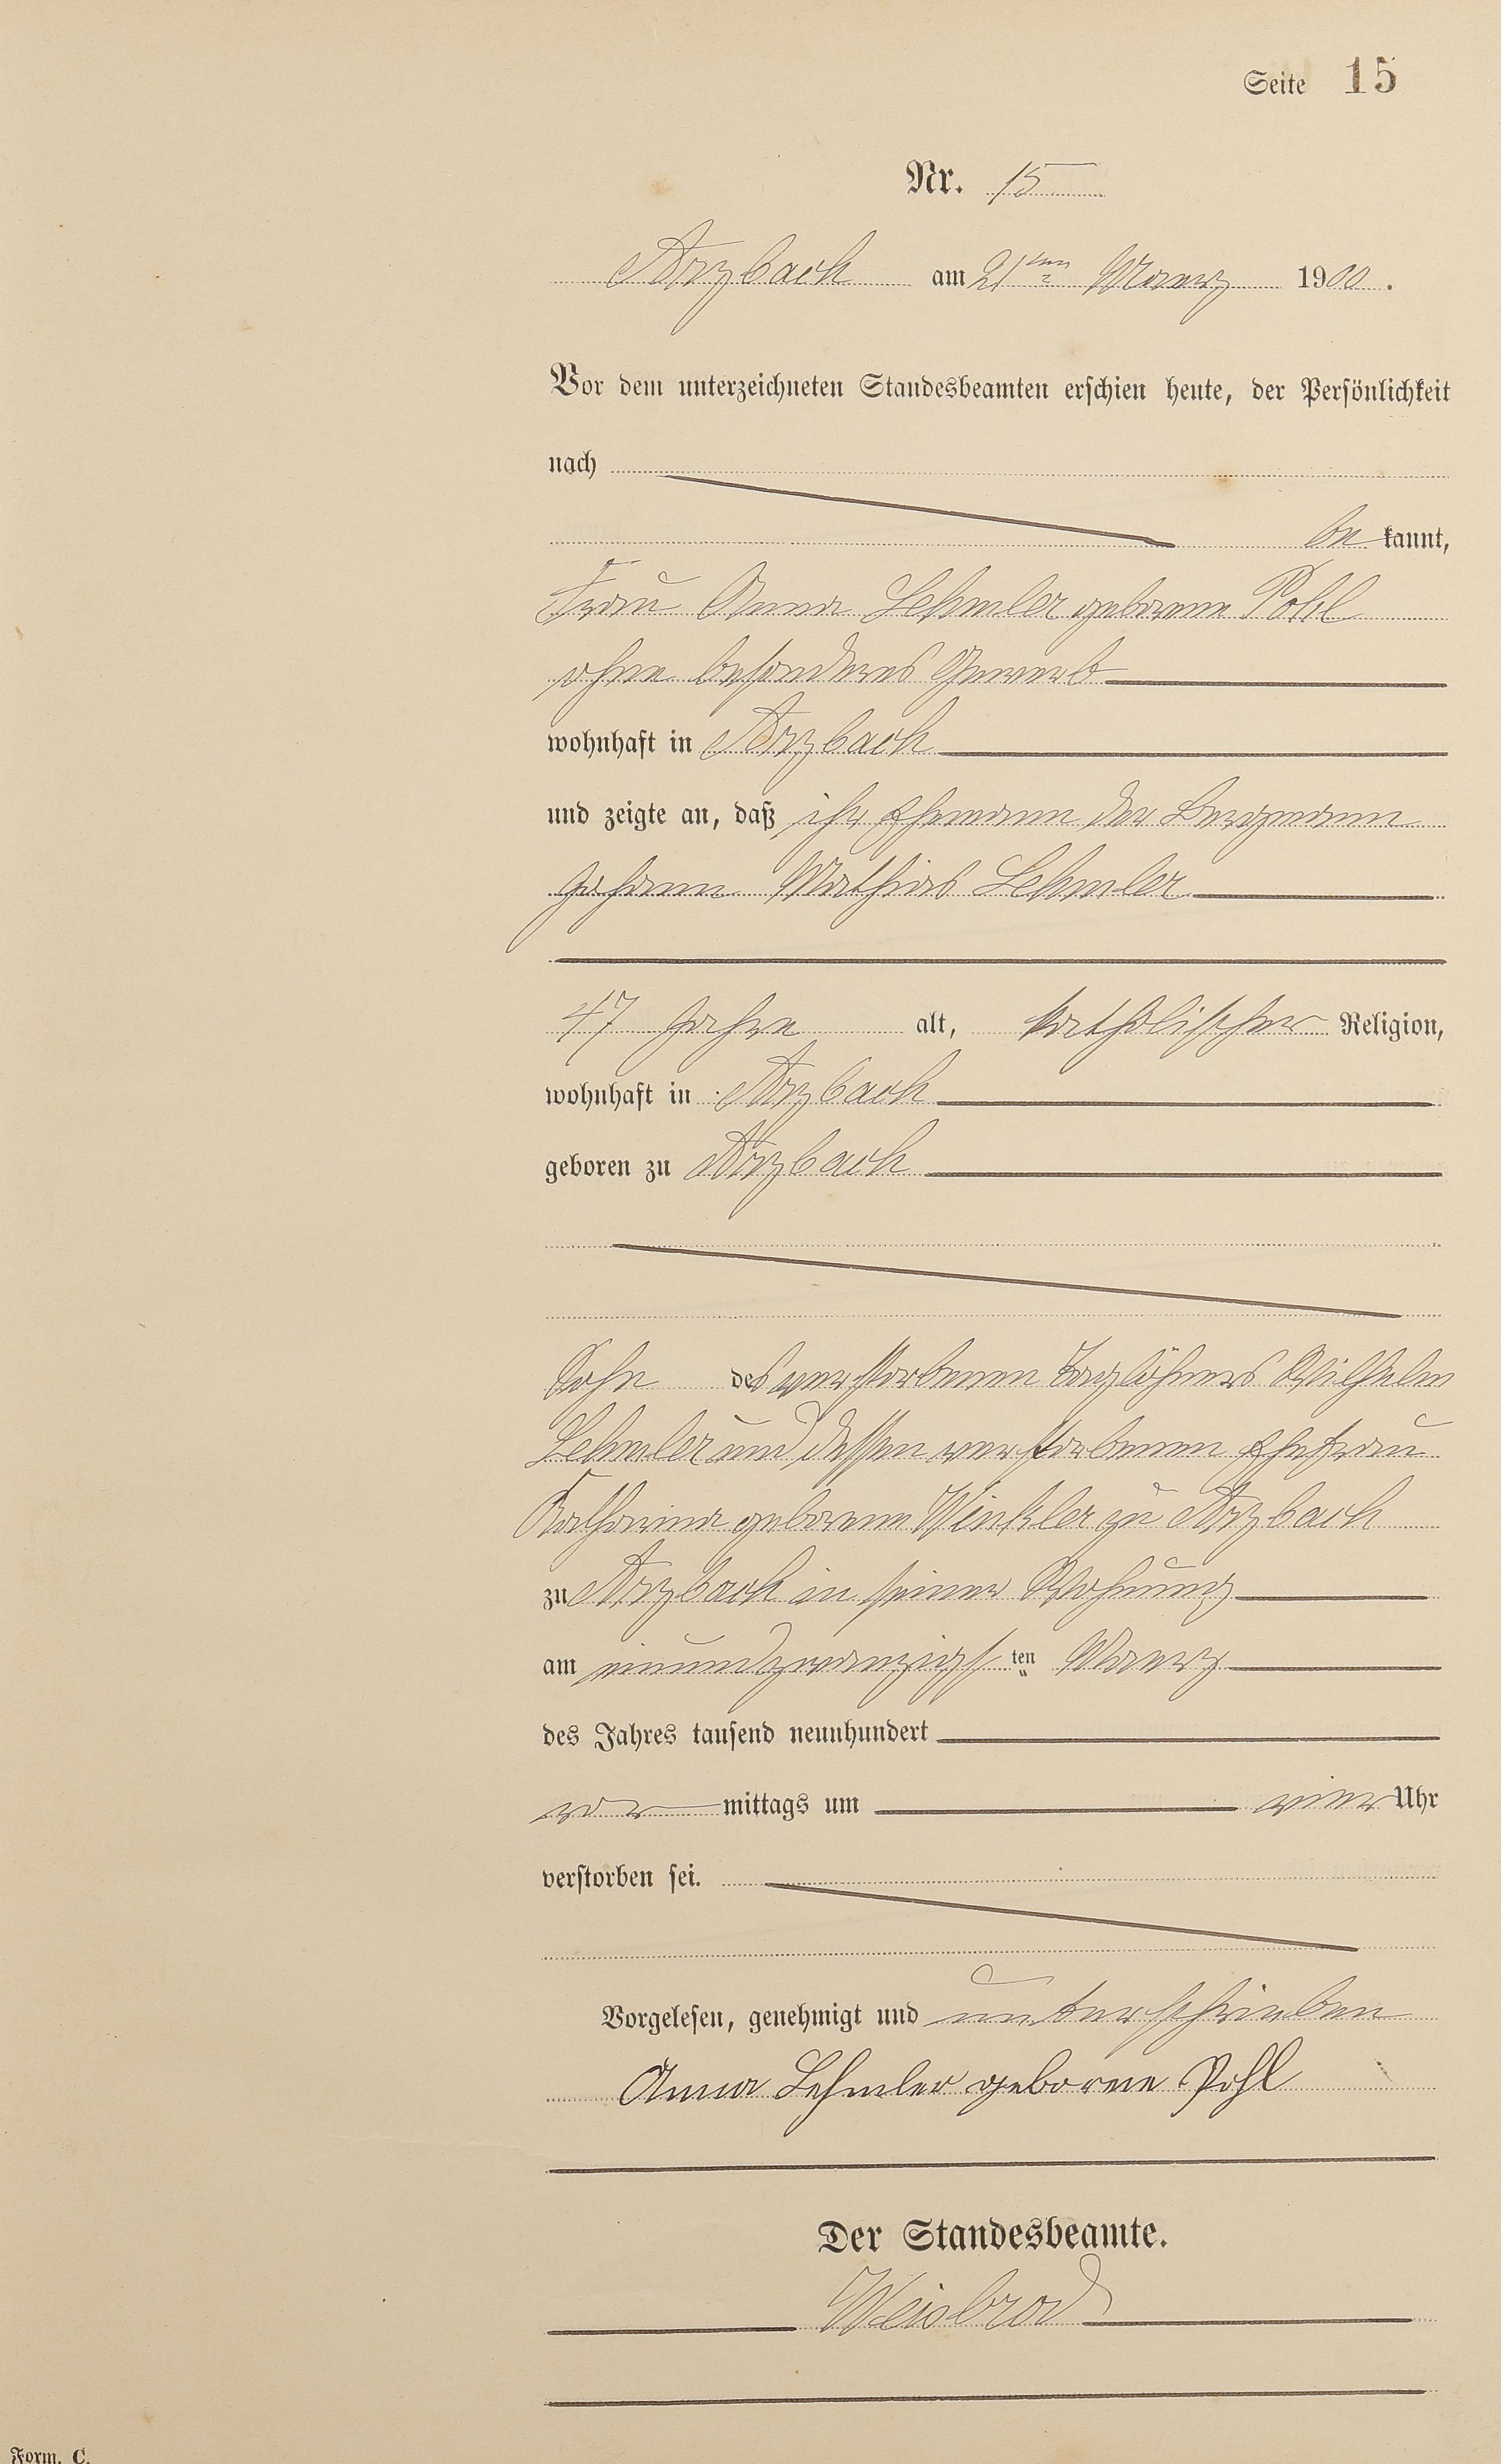 Seite 15
Nr. 15
Arzbach am 21ten Maerz 1900.
Vor dem unterzeichneten Standesbeamten erschien heute, der Persönlichkeit
nach
be kannt,
Frau Anna Lehmler geborene Pohl
ohne besonderes Gewerb
wohnhaft in Arzbach
und zeigte an, daß ihr Ehemann der Bergmann
Johann Mathias Lehmler
47 Jahre alt, katholischer Religion,
wohnhaft in Arzbach
geboren zu Arzbach
Sohn des verstorbenen Taglöhners Wilhelm
Lehmler und dessen verstorbenen Ehefrau
Katharina geborene Winkler zu Arzbach
zu Arzbach in seiner Wohnung
am einundzwanzigsten Maerz
des Jahres tausend neunhundert
vor mittags um vier Uhr
verstorben sei.
Vorgelesen, genehmigt und unterschrieben
Anna Lehmler geborene Pohl
Der Standesbeamte.
Weisbrod
Form. C.